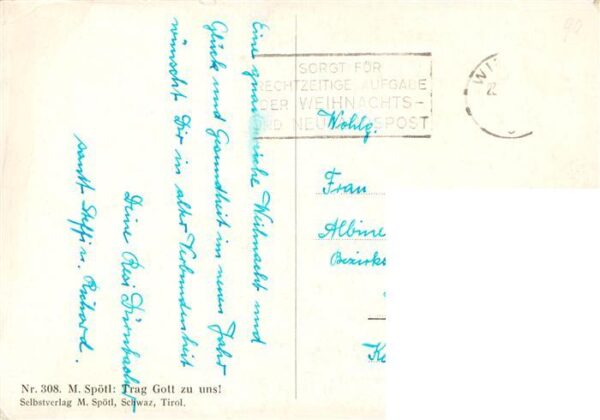 Eine gnadenreiche Weihnacht und
Glück und Gesundheit im neuen Jahr
wünscht Dir in alter Verbundenheit
Deine Resi
samt Steffi u. Richard.
SORGT FÜR
RECHTZEITIGE AUFGABE
DER WEIHNACHTS-
UND NEUJAHRSPOST
WI
90
Wohlg.
Frau
Albine
Bezirks
Nr. 308. M. Spötl: Trag Gott zu uns!
Selbstverlag M. Spötl, Schwaz, Tirol.